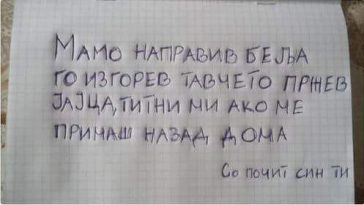 Мамо направив беља
го изгорев тавчето пржев
јајца, титни ми ако ме
примаш назад дома
Со почит син ти